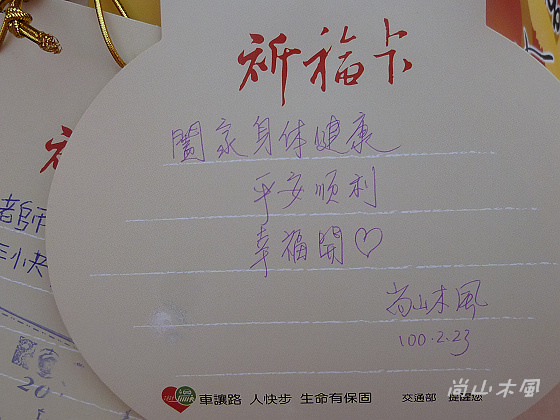 祈福卡
闔家身体健康
平安順利
幸福開♡
尚山木風
100.2.23
車讓路 人快步 生命有保固 交通部 提醒您
老師
20
尚山木風